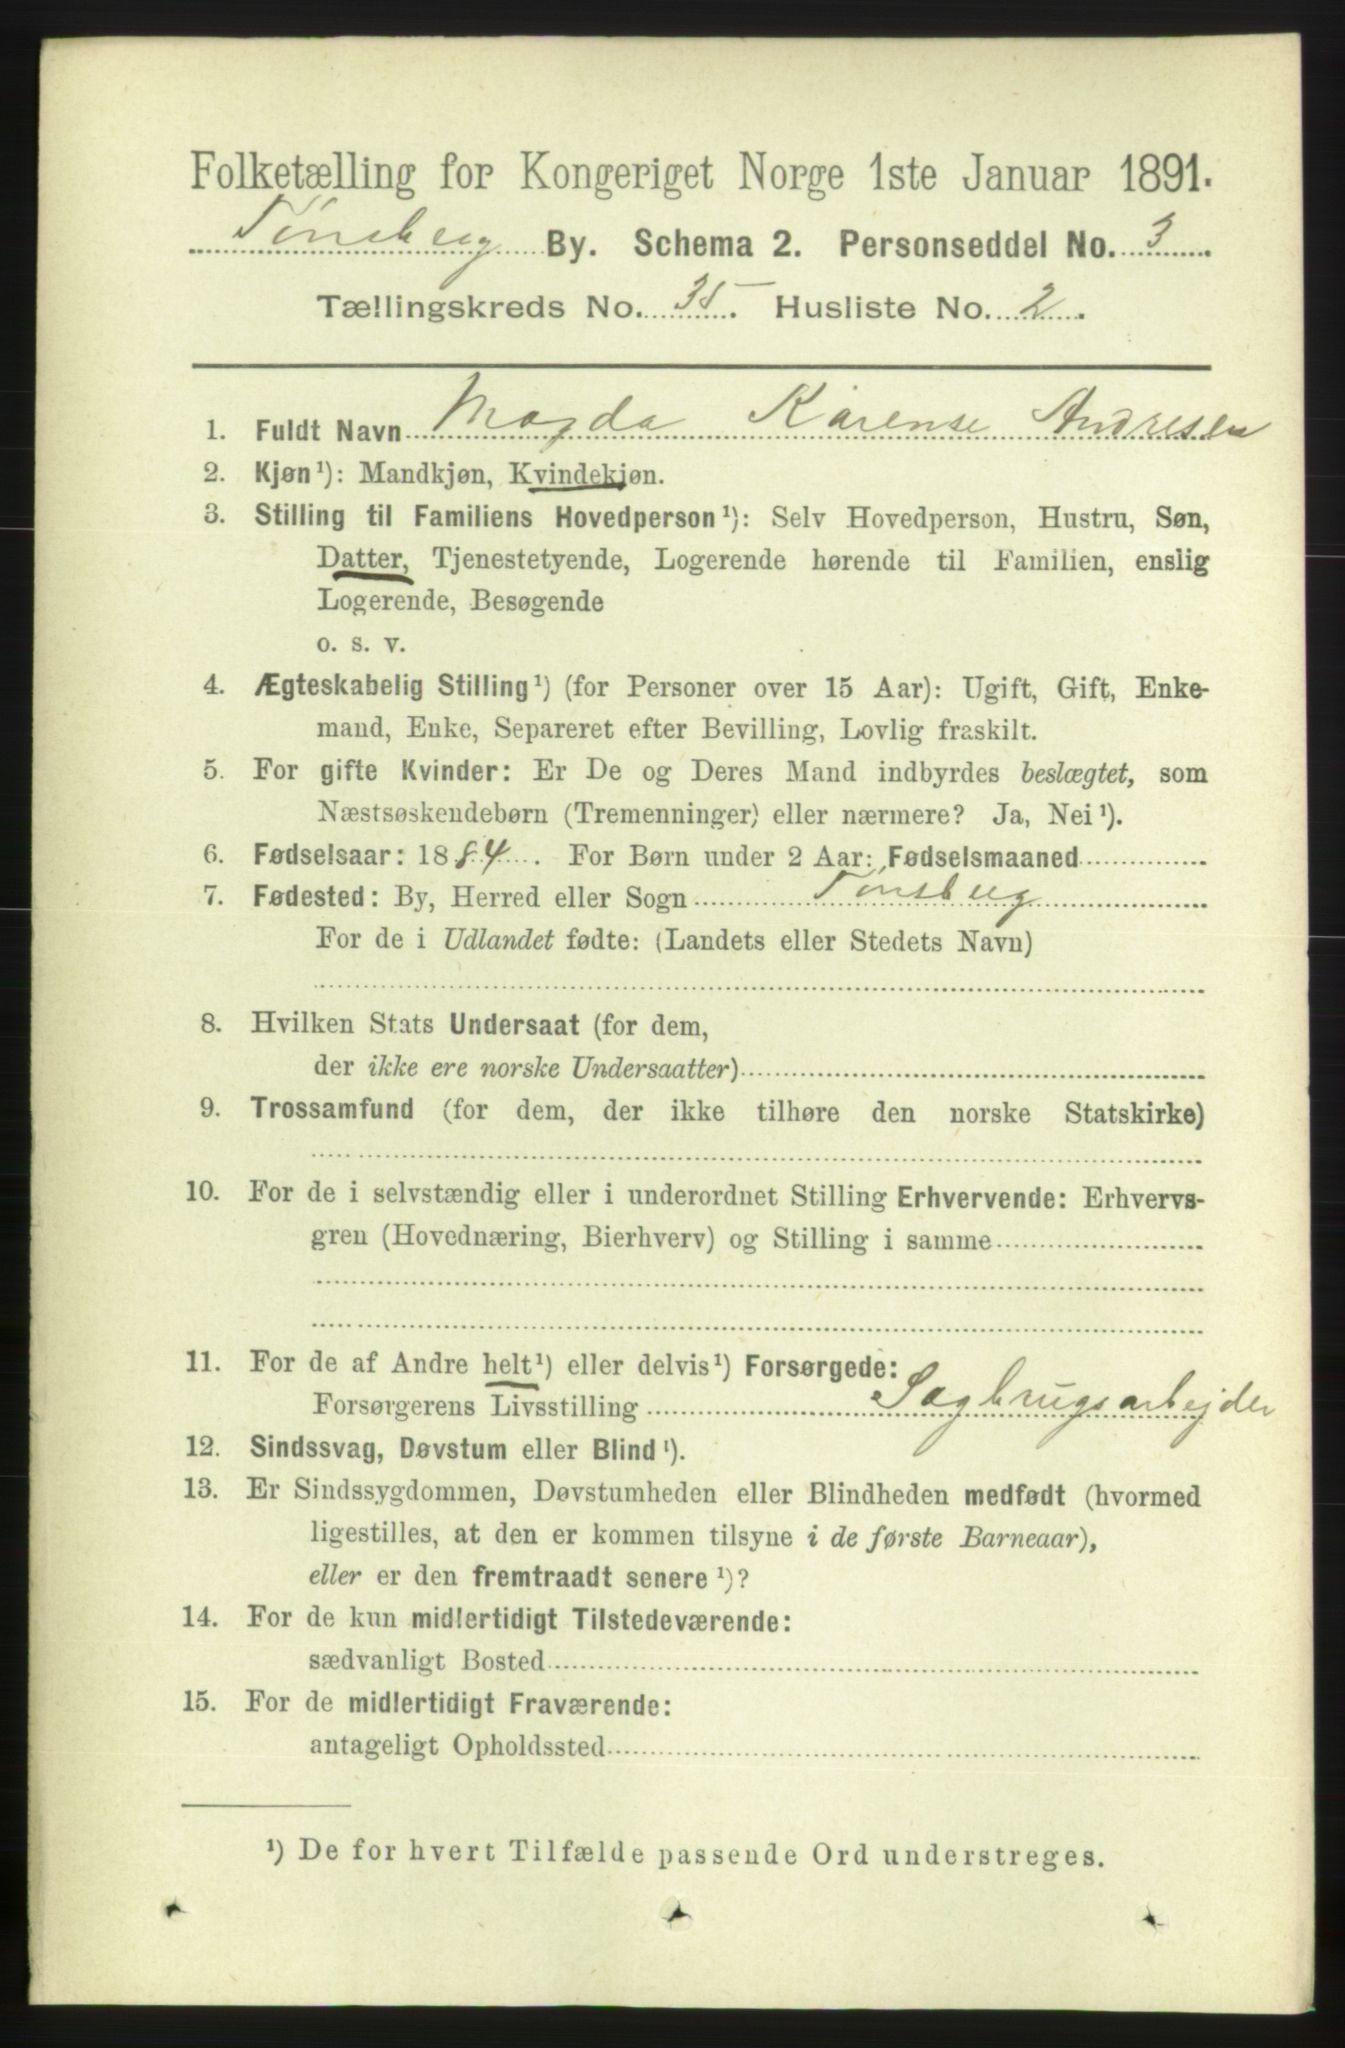 Folketælling for Kongeriget Norge 1ste Januar 1891.
Tønsberg By. Schema 2. Personseddel No. 3
Tællingskreds No. 35. Husliste No. 2.
1. Fuldt Navn Magda Karense Andresen
2. Kjøn¹): Mandkjøn, Kvindekjøn.
3. Stilling til Familiens Hovedperson¹): Selv Hovedperson, Hustru, Søn,
Datter, Tjenestetyende, Logerende hørende til Familien, enslig
Logerende, Besøgende
o. s. v.
4. Ægteskabelig Stilling¹) (for Personer over 15 Aar): Ugift, Gift, Enke-
mand, Enke, Separeret efter Bevilling, Lovlig fraskilt.
5. For gifte Kvinder: Er De og Deres Mand indbyrdes beslægtet, som
Næstsøskendebørn (Tremenninger) eller nærmere? Ja, Nei¹).
6. Fødselsaar: 1884. For Børn under 2 Aar: Fødselsmaaned
7. Fødested: By, Herred eller Sogn Tønsberg
For de i Udlandet fødte: (Landets eller Stedets Navn)
8. Hvilken Stats Undersaat (for dem,
der ikke ere norske Undersaatter)
9. Trossamfund (for dem, der ikke tilhøre den norske Statskirke)
10. For de i selvstændig eller i underordnet Stilling Erhvervende: Erhvervs-
gren (Hovednæring, Bierhverv) og Stilling i samme
11. For de af Andre helt¹) eller delvis¹) Forsørgede:
Forsørgerens Livsstilling Sagbrugsarbejder
12. Sindssvag, Døvstum eller Blind¹).
13. Er Sindssygdommen, Døvstumheden eller Blindheden medfødt (hvormed
ligestilles, at den er kommen tilsyne i de første Barneaar),
eller er den fremtraadt senere¹)?
14. For de kun midlertidigt Tilstedeværende:
sædvanligt Bosted
15. For de midlertidigt Fraværende:
antageligt Opholdssted
¹) De for hvert Tilfælde passende Ord understreges.